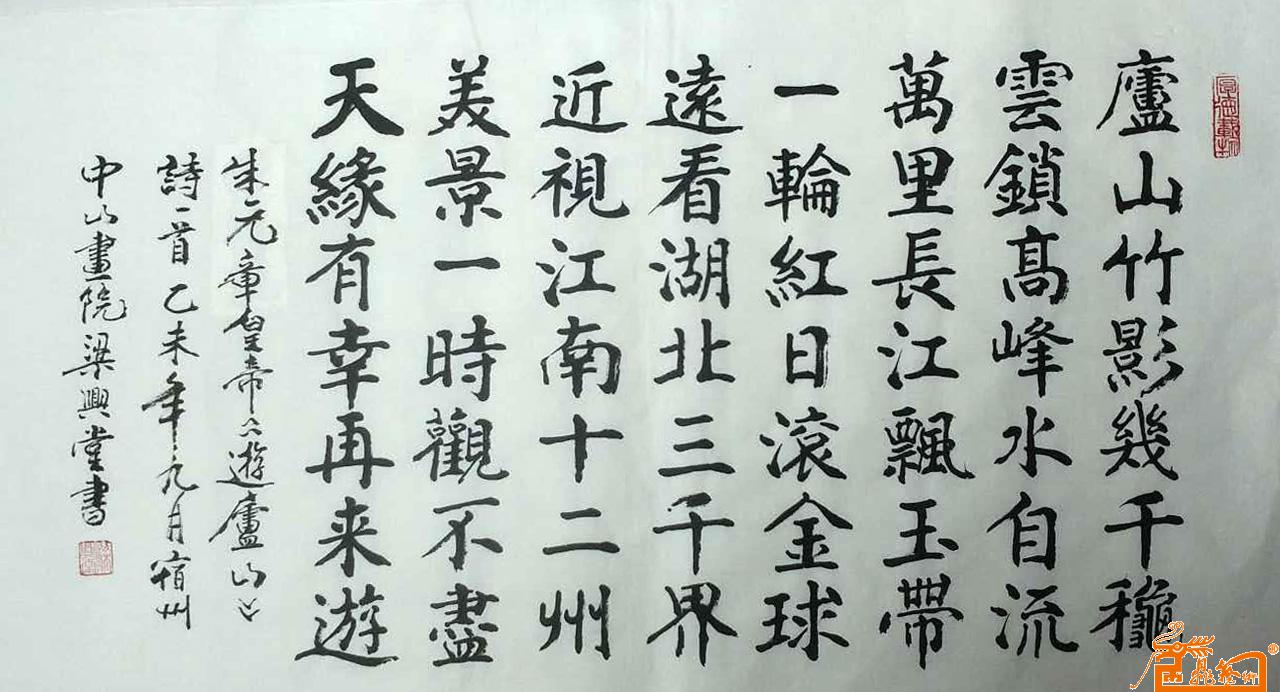 厚德載物
廬山竹影幾千穐
雲鎖髙峰水自流
萬里長江飄玉帶
一輪紅日滾金球
遠看湖北三千界
近視江南十二州
美景一時觀不盡
天緣有幸再来游
朱元章皇帝《遊廬山》
詩一首乙未年九月宿州
中山畫院梁興堂書